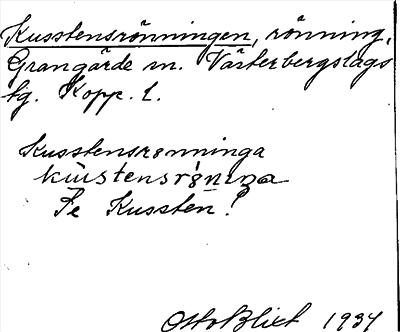 Kusstensrönningen, rönning,
Grangärde sn. Västerbergslags
tg. Kopp. l.
Kusstensrönninga
kustensrö̀niŋa
Se Kussten!
Otto Blixt 1934